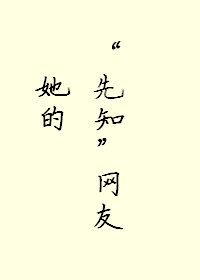 她的
“先知”网友